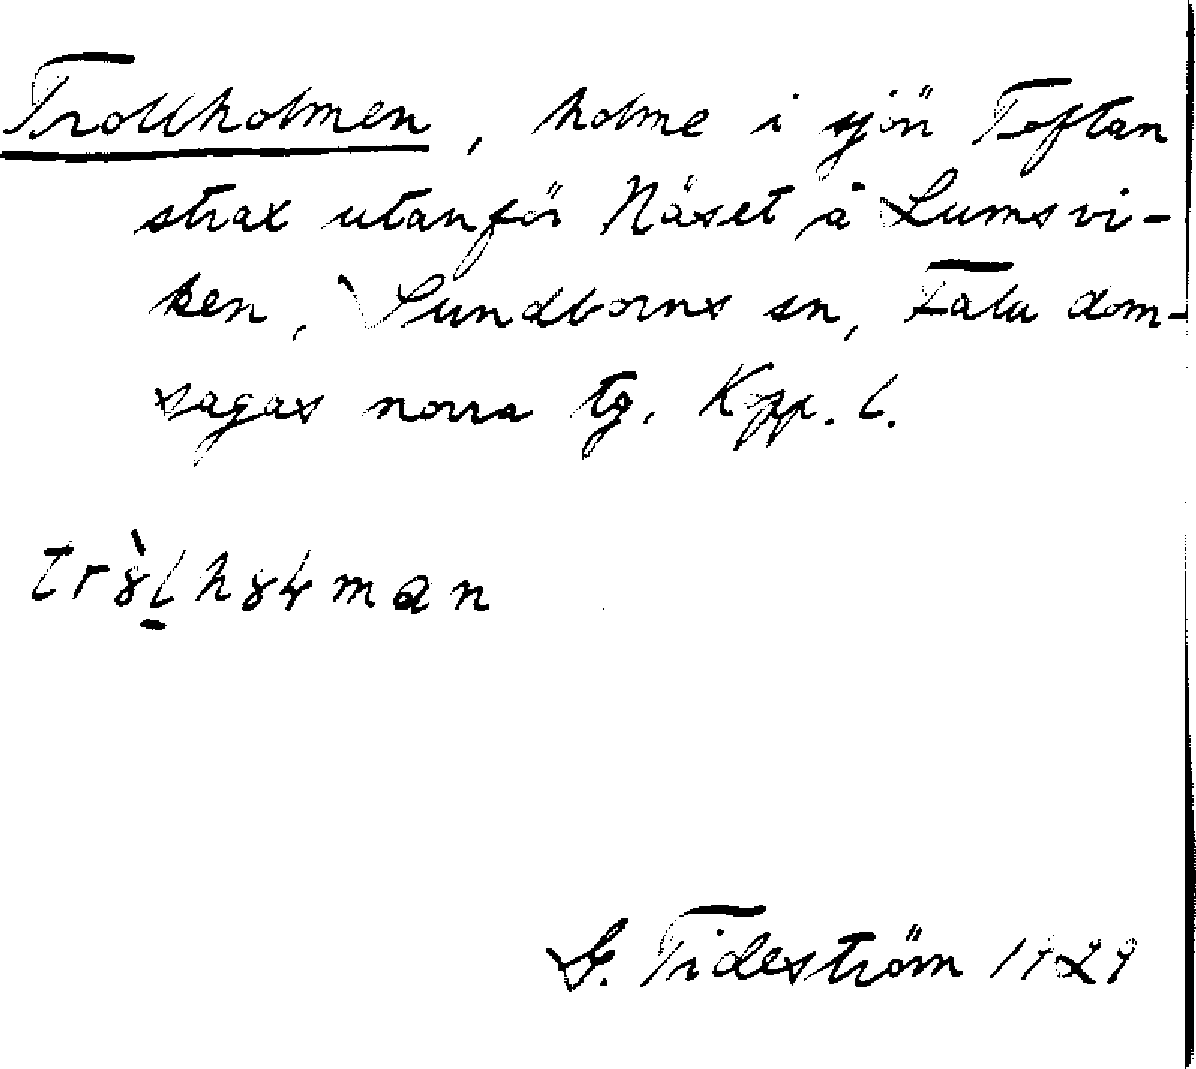 Trollholmen, holme i sjön Toftan
strax utanför Näset å Lumsvi-
ken, Sundborns sn, Falu dom-
sagas norra tg. Kopp. l.
G. Tideström 1929